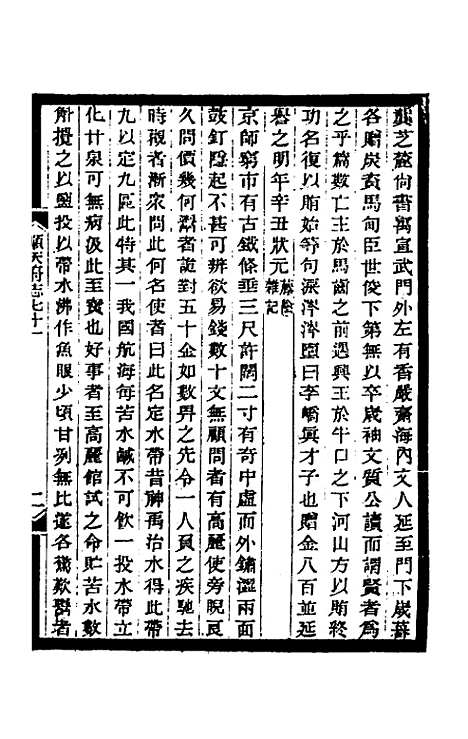 龔芝麓尚書寓宣武門外左有香嚴齋海內文人延至門下歲暮
各贈炭資馬甸臣世俊下第無以卒歲袖文質公讀而謂賢者爲
之乎篇數亡主於馬齒之前遇興王於牛口之下河山方以賄終
功名復以賄始等句淚涔涔墮曰李嶠眞才子也贈金八百並延
譽之明年辛丑狀元藤陰雜記
京師窮市有古鐵條垂三尺許闊二寸有奇中虛而外鏽澀兩面
鼓釘隱起不甚可辨欲易錢數十文無顧問者有高麗使旁睨良
久問價幾何鬻者詭對五十金如數畀之先令一人負之疾馳去
時觀者漸衆問此何名使者曰此名定水帶昔神禹治水得此帶
九以定九區此特其一我國航海每苦水鹹不可飲一投水帶立
化甘泉可無病汲此至寶也好事者至高麗館試之命貯苦水數
斛攪之以鹽投以帶水沸作魚眼少頃甘冽無比遂各驚歎鬻者
順天府志七十一
二